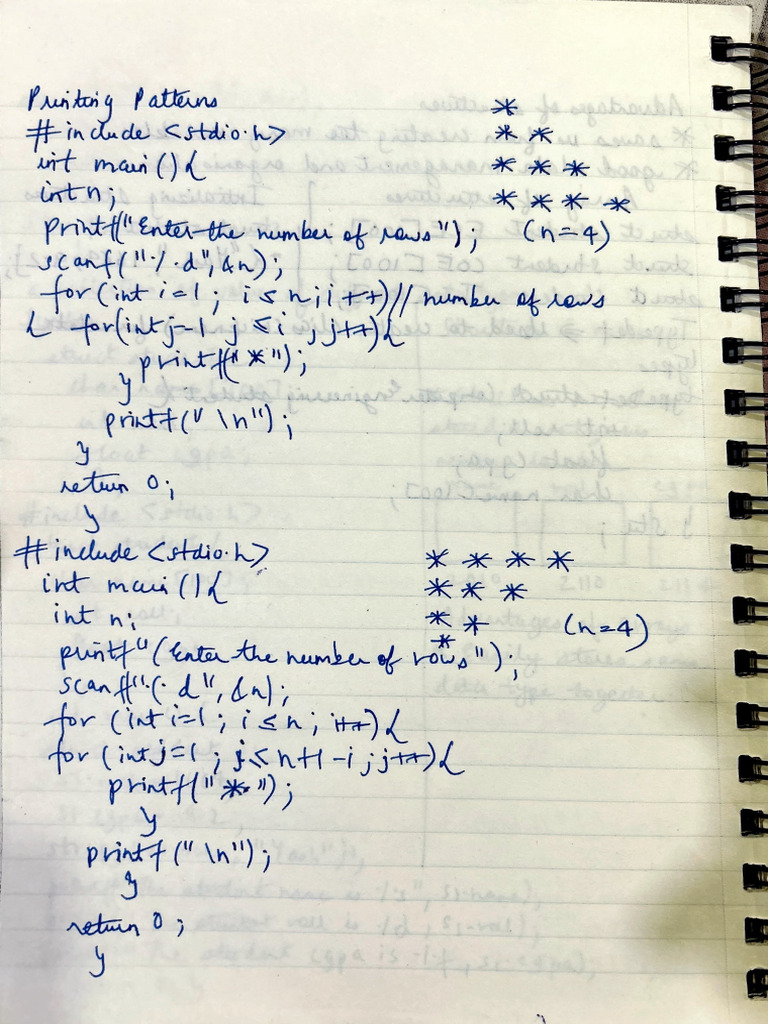 Printing Patterns
*
#include <stdio.h>
* *
int main(){
* * *
int n;
* * * *
printf("Enter the number of rows");
(n=4)
scanf("%d",&n);
for(int i=1; i≤n; i++)// number of rows
{ for(int j=1; j≤i; j++){
printf("*");
}
printf("\n");
}
return 0;
}
#include <stdio.h>
* * * *
int main(){
* * *
int n;
* *
(n=4)
*
printf"(Enter the number of rows");
scanf"(%d",&n);
for (int i=1; i≤n; i++){
for (int j=1; j≤n+1-i; j++){
printf("*");
}
printf("\n");
}
return 0;
}